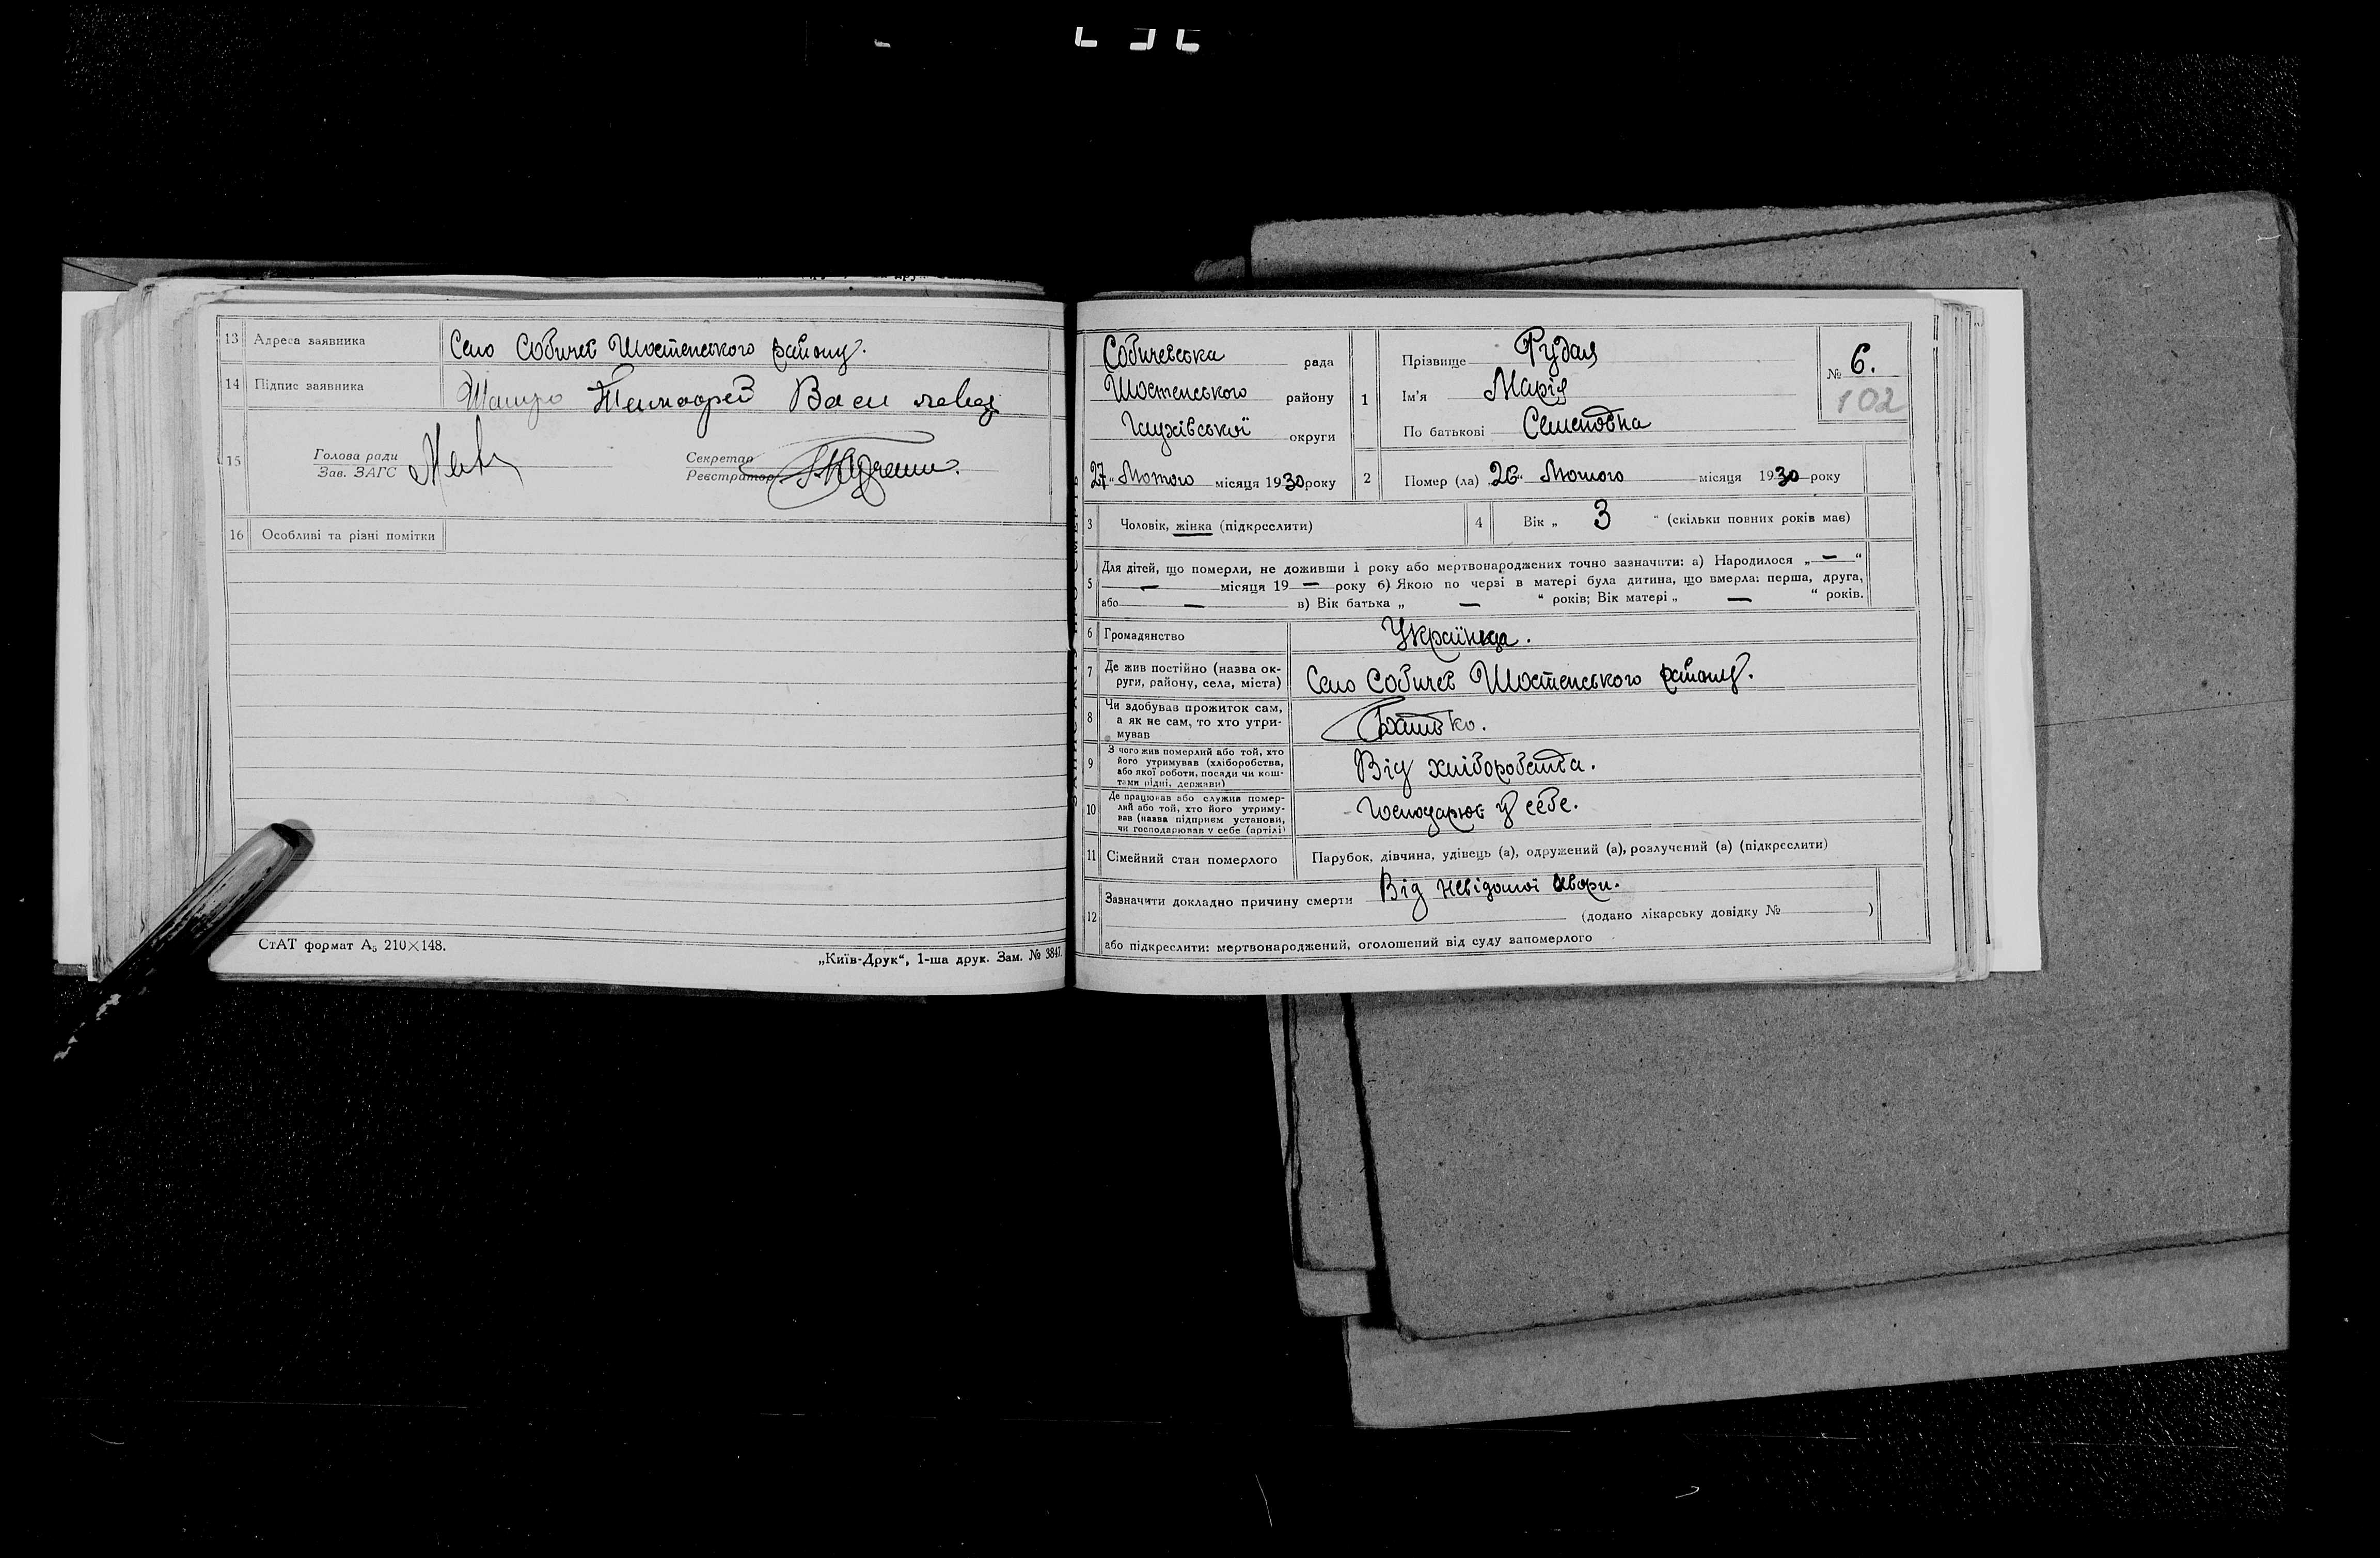 13 Адреса заявника Село Собичев Шостенського району.
14 Підпис заявника Тимофей Васи
15 Голова ради
Зав. ЗАГС
Секретар
Реєстратор
16 Особливі та різні помітки
СтАТ формат А₅ 210×148.
„Київ-Друк“, 1-ша друк. Зам. № 3847.
Собичевська рада
Шостенського району
Глухівської округи
27 „ Лютого місяця 1930 року
1 Прізвище Рудая
Ім'я Марія
По батькові Семеновна
№ 6.
102
2 Помер (ла) „26“ Лютого місяця 1930 року
3 Чоловік, жінка (підкреслити)
4 Вік „ 3 “ (скільки повних років має)
5 Для дітей, що померли, не доживши 1 року або мертвонароджених точно зазначити: а) Народилося „—“
— місяця 19 — року б) Якою по черзі в матері була дитина, що вмерла: перша, друга,
або — в) Вік батька „ — “ років; Вік матері „ — “ років.
6 Громадянство Українка.
7 Де жив постійно (назва ок-
руги, району, села, міста) Село Собичев Шостенського району.
8 Чи здобував прожиток сам,
а як не сам, то хто утри-
мував Батько.
9 З чого жив померлий або той, хто
його утримував (хліборобства,
або якої роботи, посади чи кош-
тами рідні, держави) Від хліборобства.
10 Де працював або служив помер-
лий або той, хто його утриму-
вав (назва підприєм установи,
чи господарював у себе (артілі) Господарює у себе.
11 Сімейний стан померлого Парубок, дівчина, удівець (а), одружений (а), розлучений (а) (підкреслити)
12 Зазначити докладно причину смерти Від невідомої хвори.
(додано лікарську довідку № )
або підкреслити: мертвонароджений, оголошений від суду запомерлого